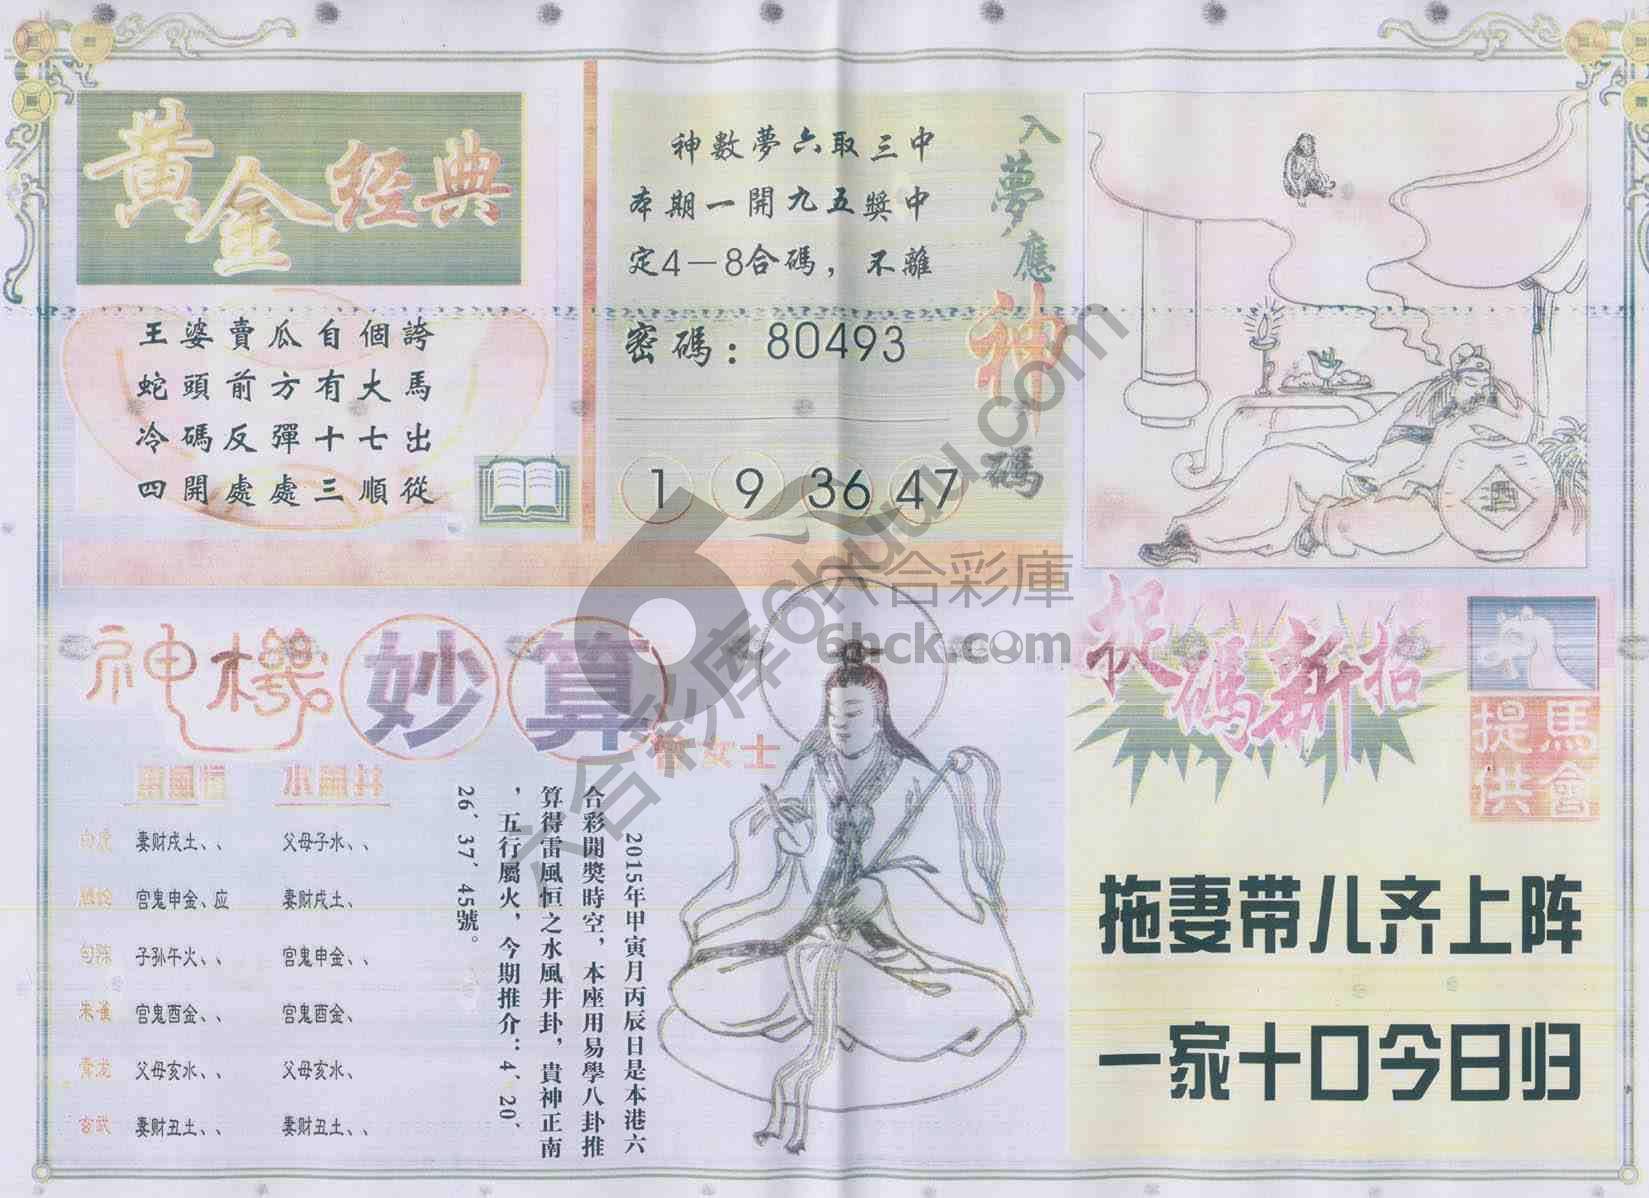 黃金經典
王婆賣瓜自個誇
蛇頭前方有大馬
冷碼反彈十七出
四開處處三順從
入夢應神碼
神數夢六取三中
本期一開九五獎中
定4－8合碼，不離
密碼：80493
1 9 36 47
神機妙算
女士
白虎 妻财戌土、、 父母子水、、
螣蛇 官鬼申金、应 妻财戌土、
勾陈 子孙午火、、 官鬼申金、、
朱雀 官鬼酉金、、 官鬼酉金、
青龙 父母亥水、、 父母亥水、
玄武 妻财丑土、、 妻财丑土、、
2015年甲寅月丙辰日是本港六
合彩開獎時空，本座用易學八卦推
算得雷風恒之水風井卦，貴神正南
，五行屬火，今期推介：4、20、
26、37、45號。
捉碼新招
馬會
提供
拖妻带儿齐上阵
一家十口今日归
六合彩庫
6hck.com
六合彩库6huu.com